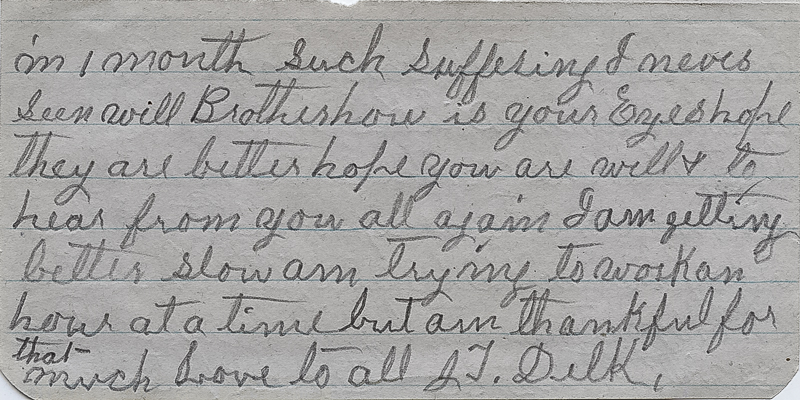 in 1 month Such Suffering I never
Seen will Brother how is your Eyes hope
they are better hope you are well & to
hear from you all again I am getting
better slow am trying to work an
hour at a time but am thankful for
that
much Love to all J T. Delk,